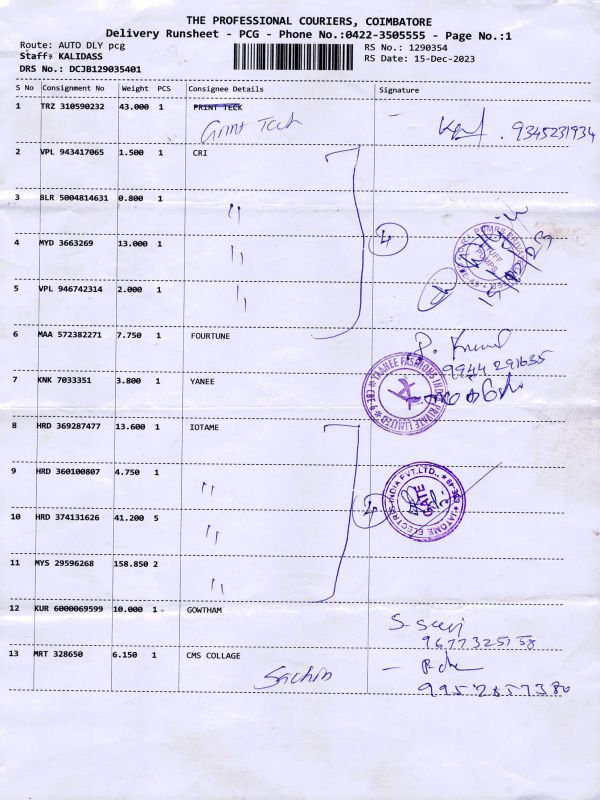 THE PROFESSIONAL COURIERS, COIMBATORE
Delivery Runsheet - PCG - Phone No.:0422-3505555 - Page No.:1
Route: AUTO DLY pcg RS No.: 1290354
Staff: KALIDASS RS Date: 15-Dec-2023
DRS No.: DCJB129035401
S No Consignment No Weight PCS Consignee Details Signature
1 TRZ 310590232 43.000 1 PRINT TECK
Grint Teck 9345231934
2 VPL 943417065 1.500 1 CRI
3 BLR 5004814631 0.800 1
"
4 MYD 3663269 13.000 1 4
"
5 VPL 946742314 2.000 1
"
6 MAA 572382271 7.750 1 FOURTUNE
P. Kumar
9944 291635
7 KNK 7033351 3.800 1 YANEE
YAANEE FASHIONS INDIA PRIVATE LIMITED
8 HRD 369287477 13.600 1 IOTAME
9 HRD 360100807 4.750 1
"
10 HRD 374131626 41.200 5 4
IATOME ELECTRIC INDIA PVT.LTD.,
GATE
"
11 MYS 29596268 158.850 2
"
12 KUR 6000069599 10.000 1 GOWTHAM
13 MRT 328650 6.150 1 CMS COLLAGE
Sachin